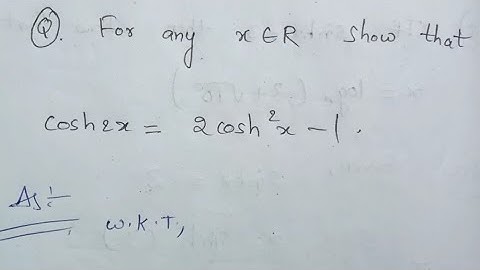 Q. For any x∈R show that
cosh2x = 2cosh²x - 1.
As:-
w.k.T,